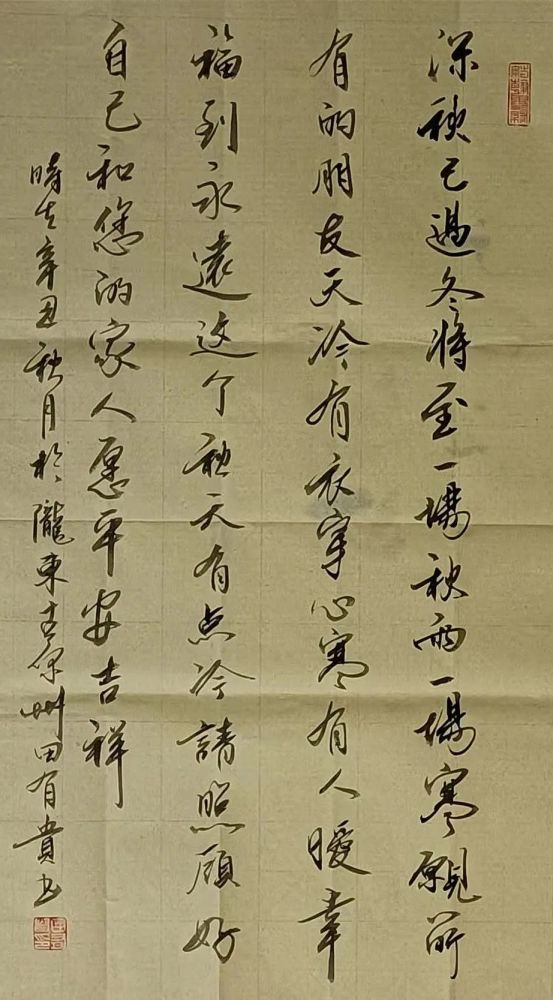 深秋已過冬將至一場秋雨一場寒願所
有的朋友天冷有衣穿心寒有人暖幸
福到永遠这个秋天有点冷請照顾好
自己和您的家人愿平安吉祥
時在辛丑秋月於隴東古原州田有貴书